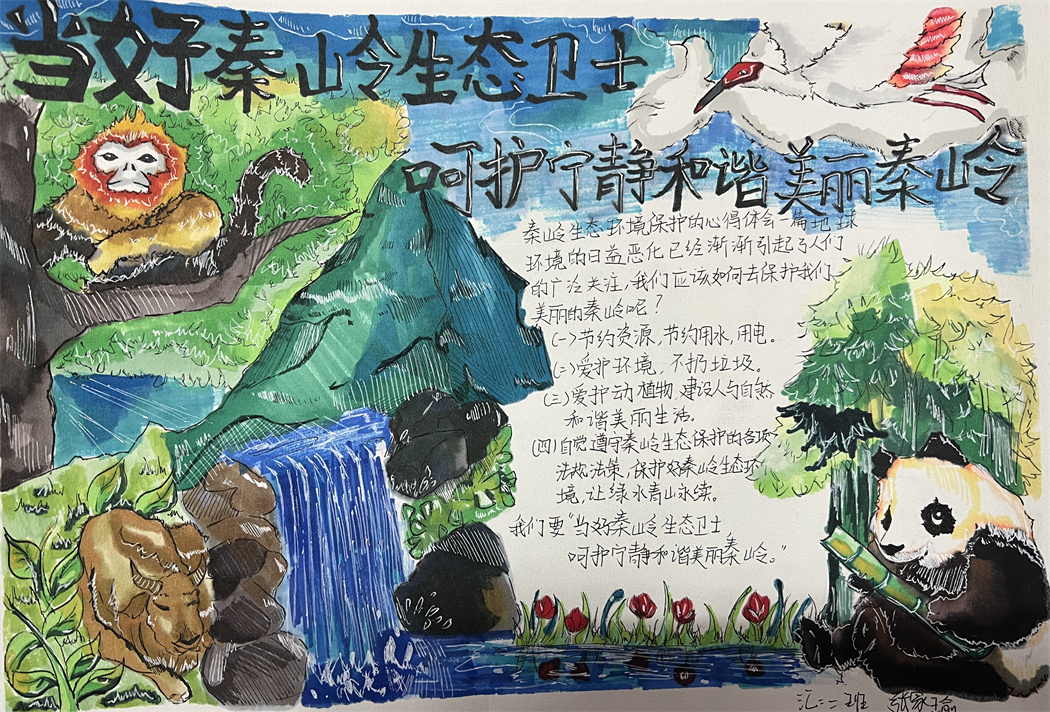 当好秦山岭生态卫士
呵护宁静和谐美丽秦山岭
秦岭生态环境保护的心得体会一篇地球
环境的日益恶化已经渐渐引起了人们
的广泛关注，我们应该如何去保护我们
美丽的秦岭呢？
(一)节约资源，节约用水，用电。
(二)爱护环境，不扔垃圾。
(三)爱护动植物，建设人与自然
和谐美丽生活。
(四)自觉遵守秦岭生态保护的各项
法规法策，保护好秦岭生态环
境，让绿水青山永续。
我们要“当好秦岭生态卫士
呵护宁静和谐美丽秦岭。”
二班 张家瑜